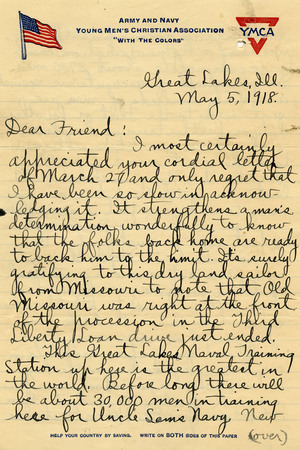 ARMY AND NAVY
YOUNG MEN'S CHRISTIAN ASSOCIATION
"WITH THE COLORS"
YMCA
Great Lakes, Ill.
May 5, 1918.
Dear Friend:
I most certainly
appreciated your cordial letter
of March 27 and only regret that
I have been so slow in acknow
ledging it. It strengthens a man's
determination wonderfully to know
that the folks back home are ready
to back him to the limit. It's surely
gratifying to this dry land sailor
from Missouri to note that Old
Missouri was right at the front
of the procession in the Third
Liberty Loan drive just ended.
This Great Lakes Naval Training
Station up here is the greatest in
the world. Before long there will
be about 30,000 men in training
here for Uncle Sam's Navy. New
(over)
HELP YOUR COUNTRY BY SAVING. WRITE ON BOTH SIDES OF THIS PAPER